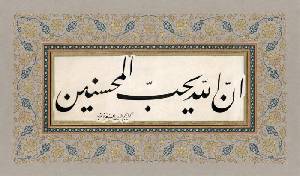 انّ الله يحبّ المحسنين